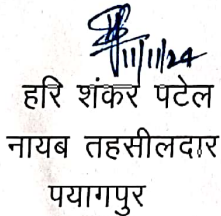 11/11/24
हरि शंकर पटेल
नायब तहसीलदार
पयागपुर